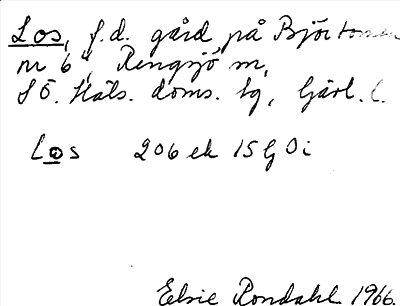 Los, f.d. gård på Björtomen
nr 6, Rengsjö sn,
SÖ. Häls. doms. tg, Gävl. l.
Los 206 ek 15 G Oi
Elsie Rondahl 1966.